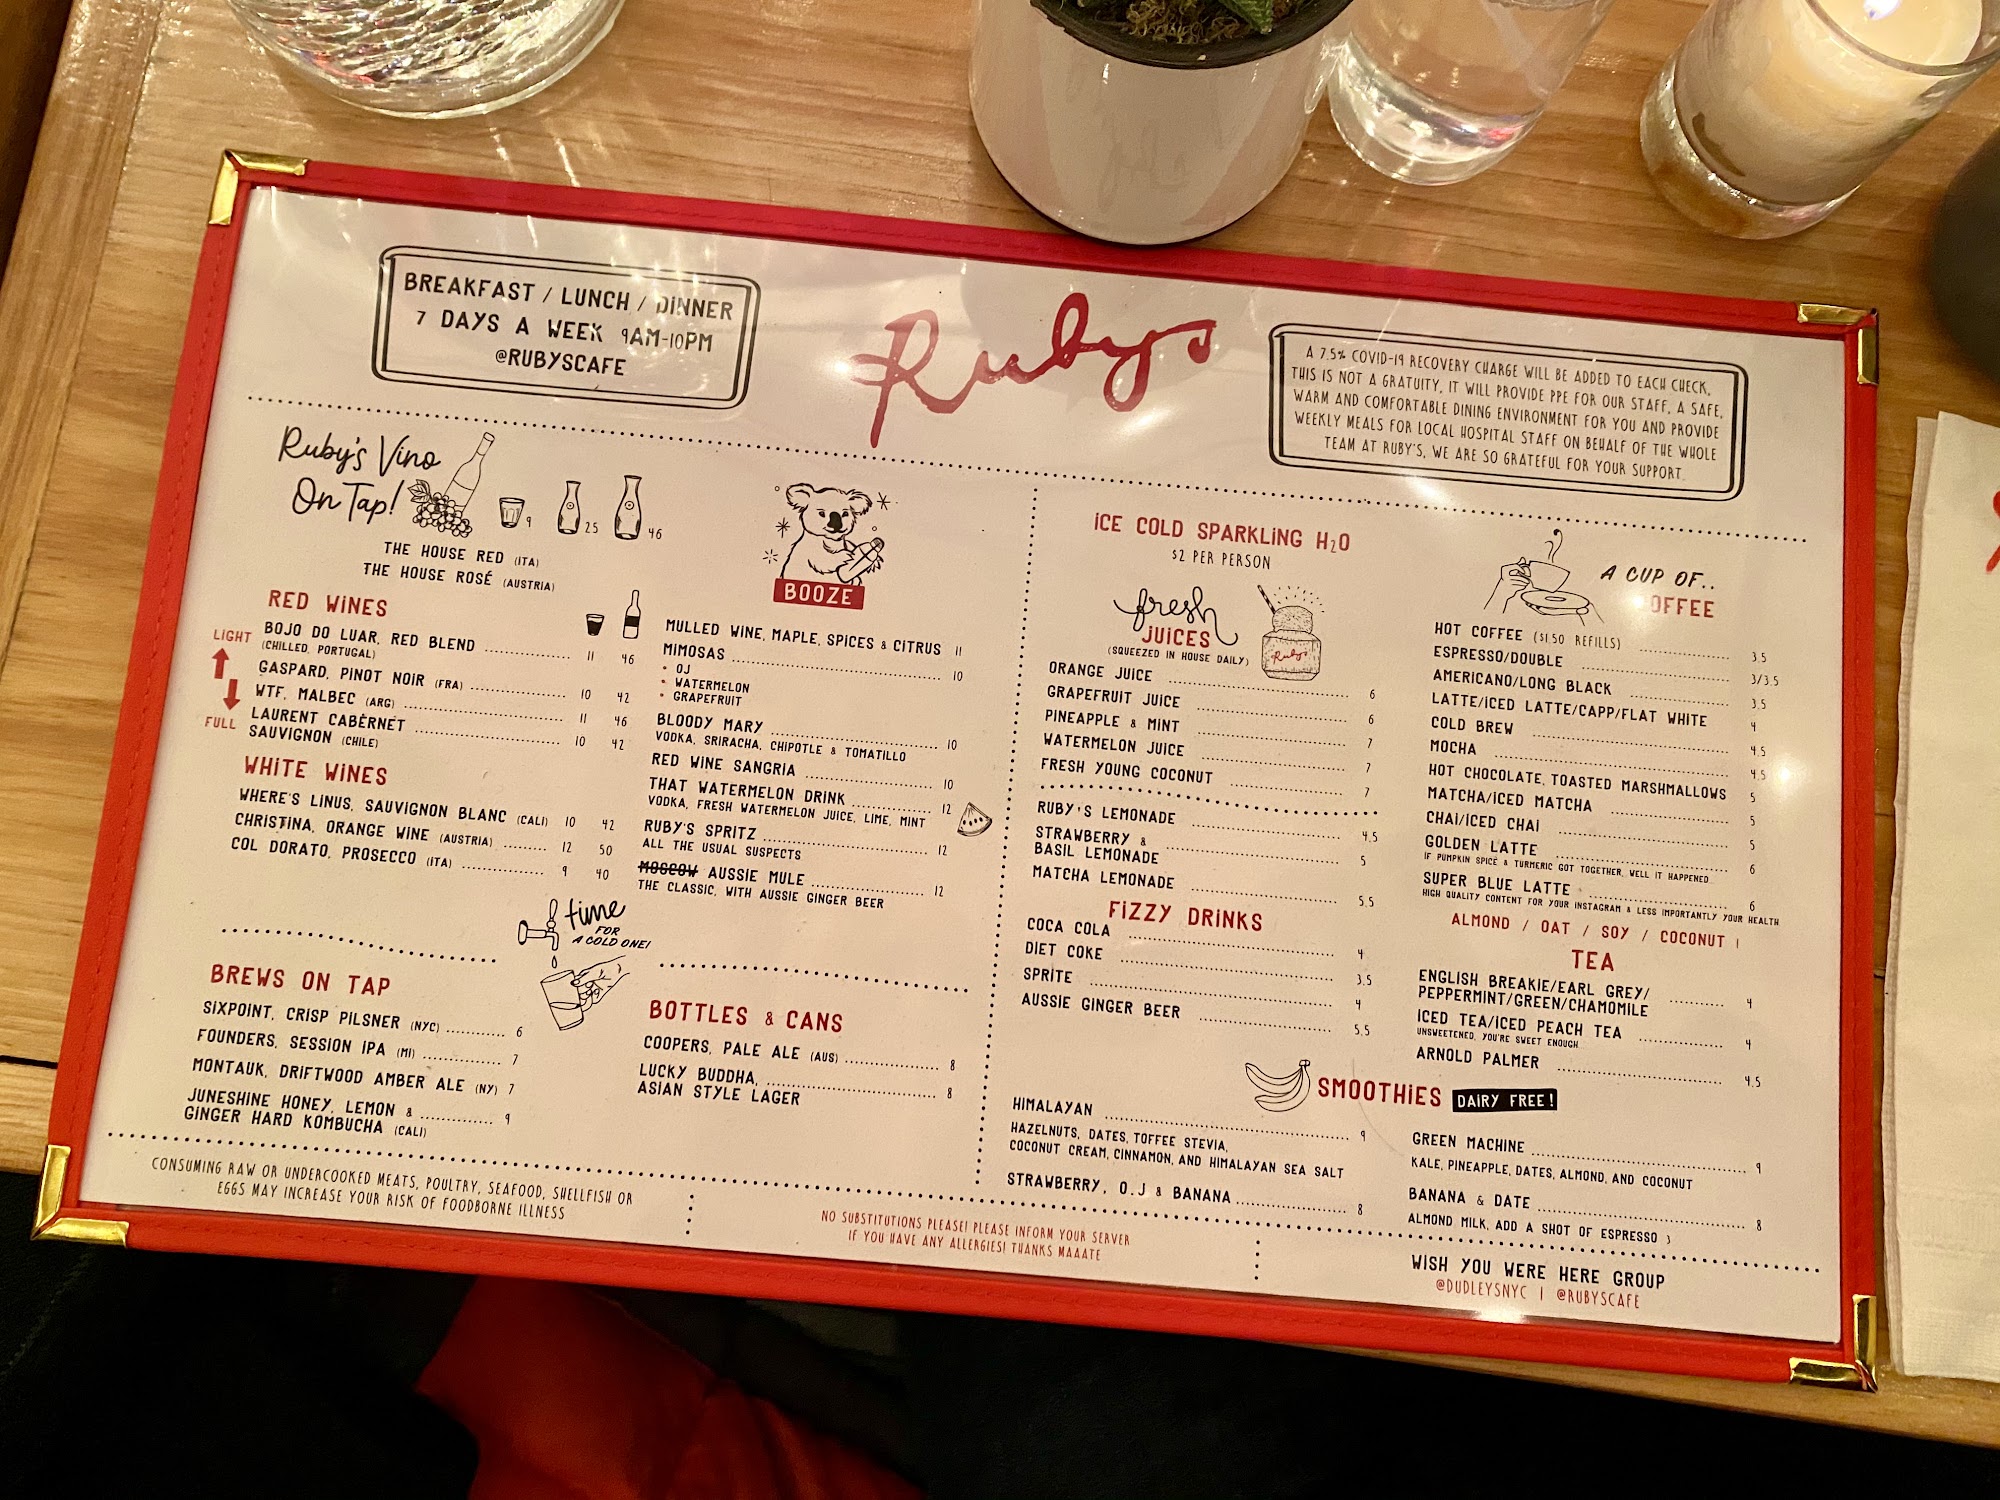 BREAKFAST / LUNCH / DINNER
7 DAYS A WEEK 9AM-10PM
@RUBYSCAFE
Rubys
A 7.5% COVID-19 RECOVERY CHARGE WILL BE ADDED TO EACH CHECK,
THIS IS NOT A GRATUITY, IT WILL PROVIDE PPE FOR OUR STAFF, A SAFE,
WARM AND COMFORTABLE DINING ENVIRONMENT FOR YOU AND PROVIDE
WEEKLY MEALS FOR LOCAL HOSPITAL STAFF ON BEHALF OF THE WHOLE
TEAM AT RUBY'S, WE ARE SO GRATEFUL FOR YOUR SUPPORT.
Ruby's Vino
On Tap!
9 25 46
THE HOUSE RED (ITA)
THE HOUSE ROSÉ (AUSTRIA)
RED WINES
LIGHT
FULL
BOJO DO LUAR, RED BLEND 11 46
(CHILLED, PORTUGAL)
GASPARD, PINOT NOIR (FRA) 10 42
WTF, MALBEC (ARG) 11 46
LAURENT CABERNET 10 42
SAUVIGNON (CHILE)
WHITE WINES
WHERE'S LINUS, SAUVIGNON BLANC (CALI) 10 42
CHRISTINA, ORANGE WINE (AUSTRIA) 12 50
COL DORATO, PROSECCO (ITA) 9 40
BOOZE
MULLED WINE, MAPLE, SPICES & CITRUS 11
MIMOSAS 10
• OJ
• WATERMELON
• GRAPEFRUIT
BLOODY MARY 10
VODKA, SRIRACHA, CHIPOTLE & TOMATILLO
RED WINE SANGRIA 10
THAT WATERMELON DRINK 12
VODKA, FRESH WATERMELON JUICE, LIME, MINT
RUBY'S SPRITZ 12
ALL THE USUAL SUSPECTS
MOSCOW AUSSIE MULE 12
THE CLASSIC, WITH AUSSIE GINGER BEER
time
FOR
A COLD ONE!
BREWS ON TAP
SIXPOINT, CRISP PILSNER (NYC) 6
FOUNDERS, SESSION IPA (MI) 7
MONTAUK, DRIFTWOOD AMBER ALE (NY) 7
JUNESHINE HONEY, LEMON & 9
GINGER HARD KOMBUCHA (CALI)
BOTTLES & CANS
COOPERS, PALE ALE (AUS) 8
LUCKY BUDDHA, 8
ASIAN STYLE LAGER
ICE COLD SPARKLING H2O
$2 PER PERSON
fresh
JUICES
(SQUEEZED IN HOUSE DAILY)
Rubys
ORANGE JUICE 6
GRAPEFRUIT JUICE 6
PINEAPPLE & MINT 7
WATERMELON JUICE 7
FRESH YOUNG COCONUT 7
RUBY'S LEMONADE 4.5
STRAWBERRY & 5
BASIL LEMONADE
MATCHA LEMONADE 5.5
FIZZY DRINKS
COCA COLA 4
DIET COKE 3.5
SPRITE 4
AUSSIE GINGER BEER 5.5
A CUP OF..
OFFEE
HOT COFFEE ($1.50 REFILLS) 3.5
ESPRESSO/DOUBLE 3/3.5
AMERICANO/LONG BLACK 3.5
LATTE/ICED LATTE/CAPP/FLAT WHITE 4
COLD BREW 4.5
MOCHA 4.5
HOT CHOCOLATE, TOASTED MARSHMALLOWS 5
MATCHA/ICED MATCHA 5
CHAI/ICED CHAI 5
GOLDEN LATTE 6
IF PUMPKIN SPICE & TURMERIC GOT TOGETHER, WELL IT HAPPENED...
SUPER BLUE LATTE 6
HIGH QUALITY CONTENT FOR YOUR INSTAGRAM & LESS IMPORTANTLY YOUR HEALTH
ALMOND / OAT / SOY / COCONUT 1
TEA
ENGLISH BREAKIE/EARL GREY/ 4
PEPPERMINT/GREEN/CHAMOMILE
ICED TEA/ICED PEACH TEA 4
UNSWEETENED, YOU'RE SWEET ENOUGH
ARNOLD PALMER 4.5
SMOOTHIES DAIRY FREE!
HIMALAYAN 9
HAZELNUTS, DATES, TOFFEE STEVIA,
COCONUT CREAM, CINNAMON, AND HIMALAYAN SEA SALT
STRAWBERRY, O.J & BANANA 8
GREEN MACHINE 9
KALE, PINEAPPLE, DATES, ALMOND, AND COCONUT
BANANA & DATE 8
ALMOND MILK, ADD A SHOT OF ESPRESSO 3
CONSUMING RAW OR UNDERCOOKED MEATS, POULTRY, SEAFOOD, SHELLFISH OR
EGGS MAY INCREASE YOUR RISK OF FOODBORNE ILLNESS
NO SUBSTITUTIONS PLEASE! PLEASE INFORM YOUR SERVER
IF YOU HAVE ANY ALLERGIES! THANKS MAAATE
WISH YOU WERE HERE GROUP
@DUDLEYSNYC | @RUBYSCAFE